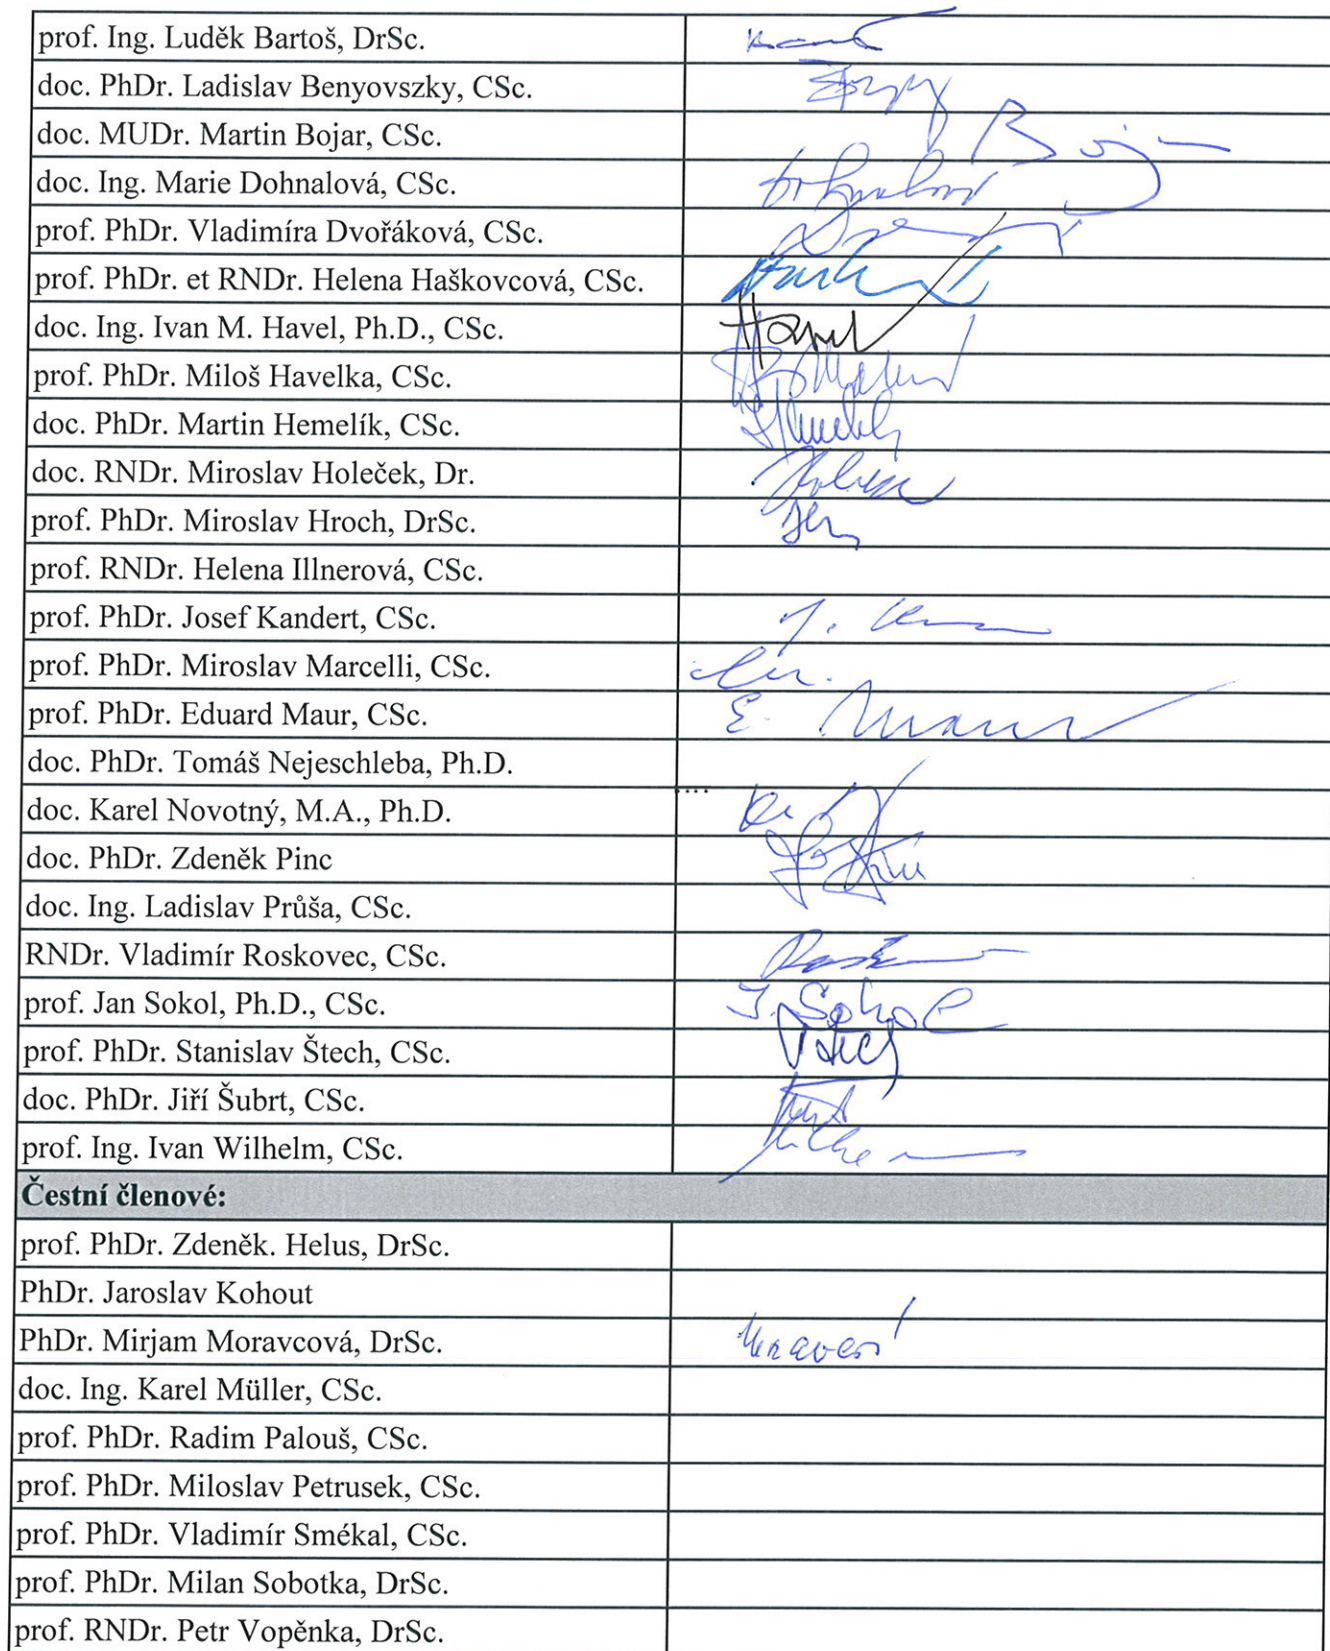 prof. Ing. Luděk Bartoš, DrSc.
doc. PhDr. Ladislav Benyovszky, CSc.
doc. MUDr. Martin Bojar, CSc.
doc. Ing. Marie Dohnalová, CSc.
prof. PhDr. Vladimíra Dvořáková, CSc.
prof. PhDr. et RNDr. Helena Haškovcová, CSc.
doc. Ing. Ivan M. Havel, Ph.D., CSc.
prof. PhDr. Miloš Havelka, CSc.
doc. PhDr. Martin Hemelík, CSc.
doc. RNDr. Miroslav Holeček, Dr.
prof. PhDr. Miroslav Hroch, DrSc.
prof. RNDr. Helena Illnerová, CSc.
prof. PhDr. Josef Kandert, CSc.
prof. PhDr. Miroslav Marcelli, CSc.
prof. PhDr. Eduard Maur, CSc. E. Maur
doc. PhDr. Tomáš Nejeschleba, Ph.D.
doc. Karel Novotný, M.A., Ph.D.
doc. PhDr. Zdeněk Pinc
doc. Ing. Ladislav Průša, CSc.
RNDr. Vladimír Roskovec, CSc.
prof. Jan Sokol, Ph.D., CSc. J. Sokol
prof. PhDr. Stanislav Štech, CSc.
doc. PhDr. Jiří Šubrt, CSc.
prof. Ing. Ivan Wilhelm, CSc.
Čestní členové:
prof. PhDr. Zdeněk. Helus, DrSc.
PhDr. Jaroslav Kohout
PhDr. Mirjam Moravcová, DrSc.
doc. Ing. Karel Müller, CSc.
prof. PhDr. Radim Palouš, CSc.
prof. PhDr. Miloslav Petrusek, CSc.
prof. PhDr. Vladimír Smékal, CSc.
prof. PhDr. Milan Sobotka, DrSc.
prof. RNDr. Petr Vopěnka, DrSc.